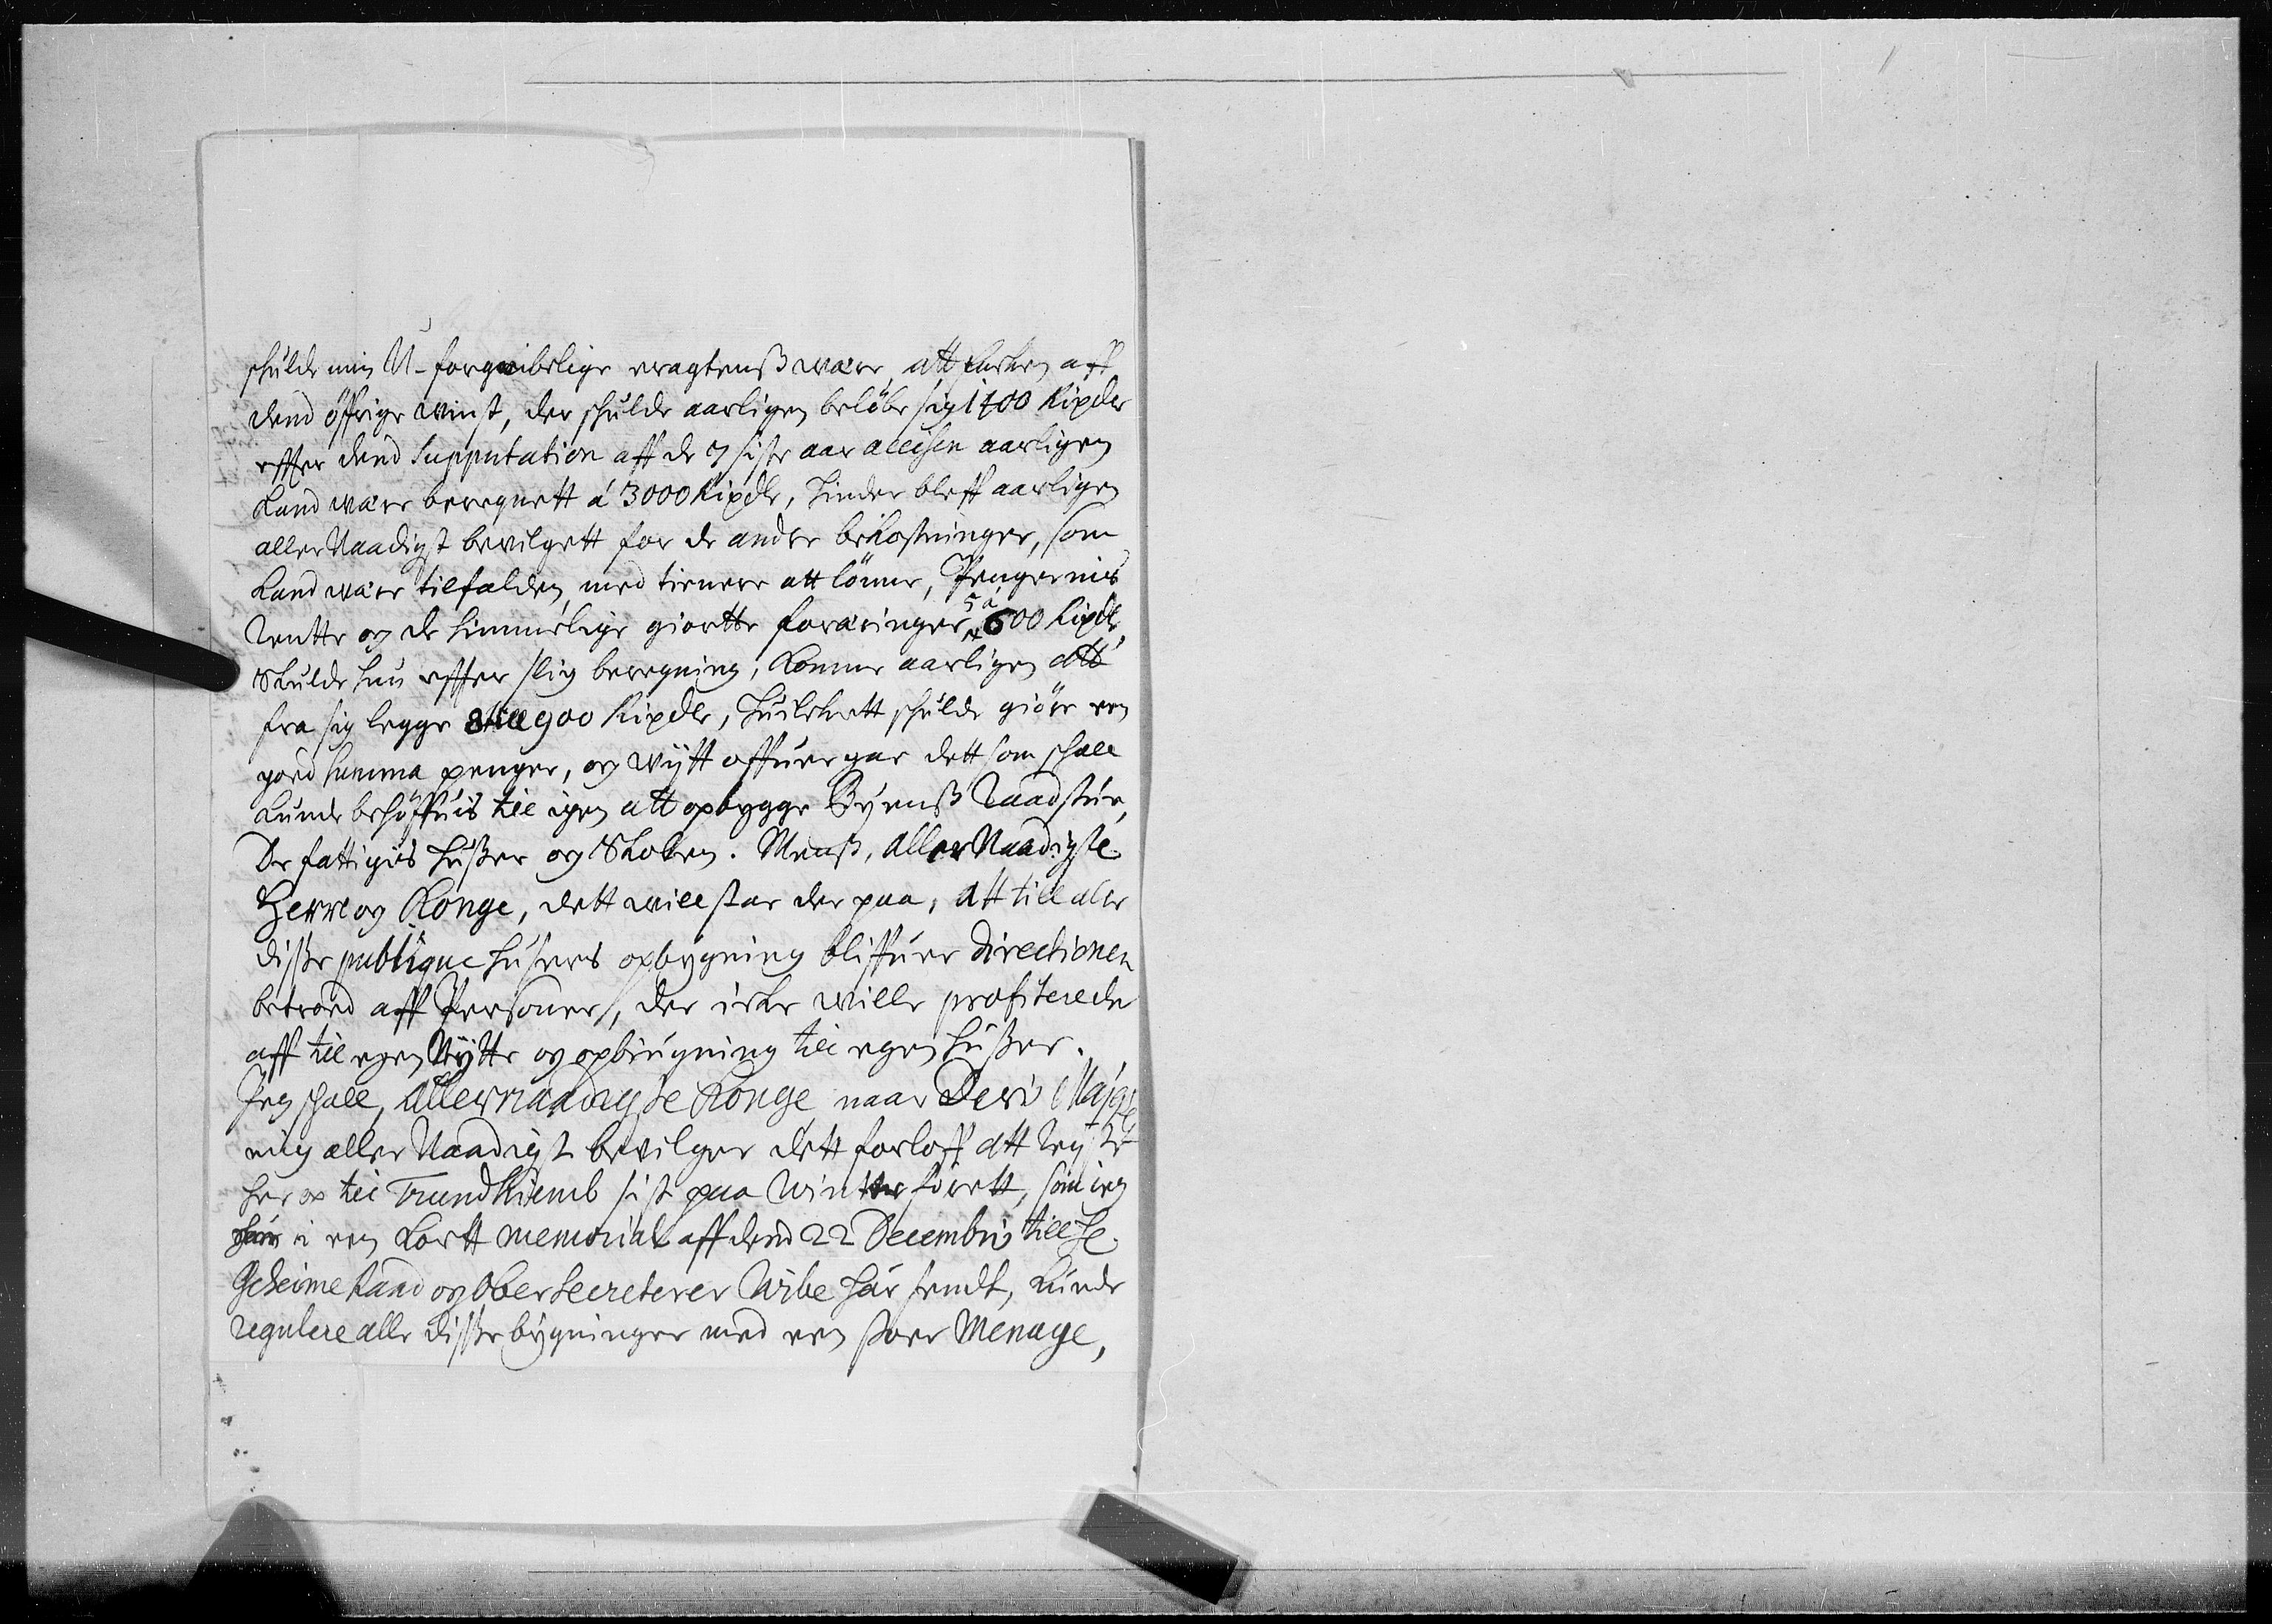 schulde min U-forgribelige eragtenß være, att aff
dend öffrige vinst, der schulde aarligen belöbe sig 1400 Rixdlr
effter dend Supputation aff de 7 siste aar accisen aarligen
kand være beregnett á 3000 Rixdlr, hinder bleff aarligen
allerNaadigst bevilgett for de andre bekostninger, som
kand være tilfalden, med tienere att lönne, Pengernis
Rentte og de himmelige giortte foræringer, 5 á 600 Rixdlr,
Skulde hun effter slig beregning, konne aarligen att
fra sig legge 8 till 900 Rixdlr, huilckett schulde giöre en
goed summa penger, og vÿtt offuergaar dett som schall
kunde behöffuis till igen att opbygge Byenß Raadstue,
De fattigis hußer og Skolen. Menß, AllerNaadigste
Herre og Konge, dett vill staa der paa, att till alle
disse publique husers opbygning bliffuer directionen
betroed aff Personer, der icke ville profitere der
aff till egen Nÿtte og opbiugning till egen hußer.
Jeg schall, Allernaadigste Konge naar Deris Majst
mig allerNaadigst bevilger dett forloff att reÿse
her op till Trundhiemb sist paa Winter föerett, som jeg
i en kortt memorial aff dend 22 Decembris till He.
Geheime Raad og Ober Secreterer Wibe har sendt, kunde
regulere alle disse bÿgninger med en stoer Menage,